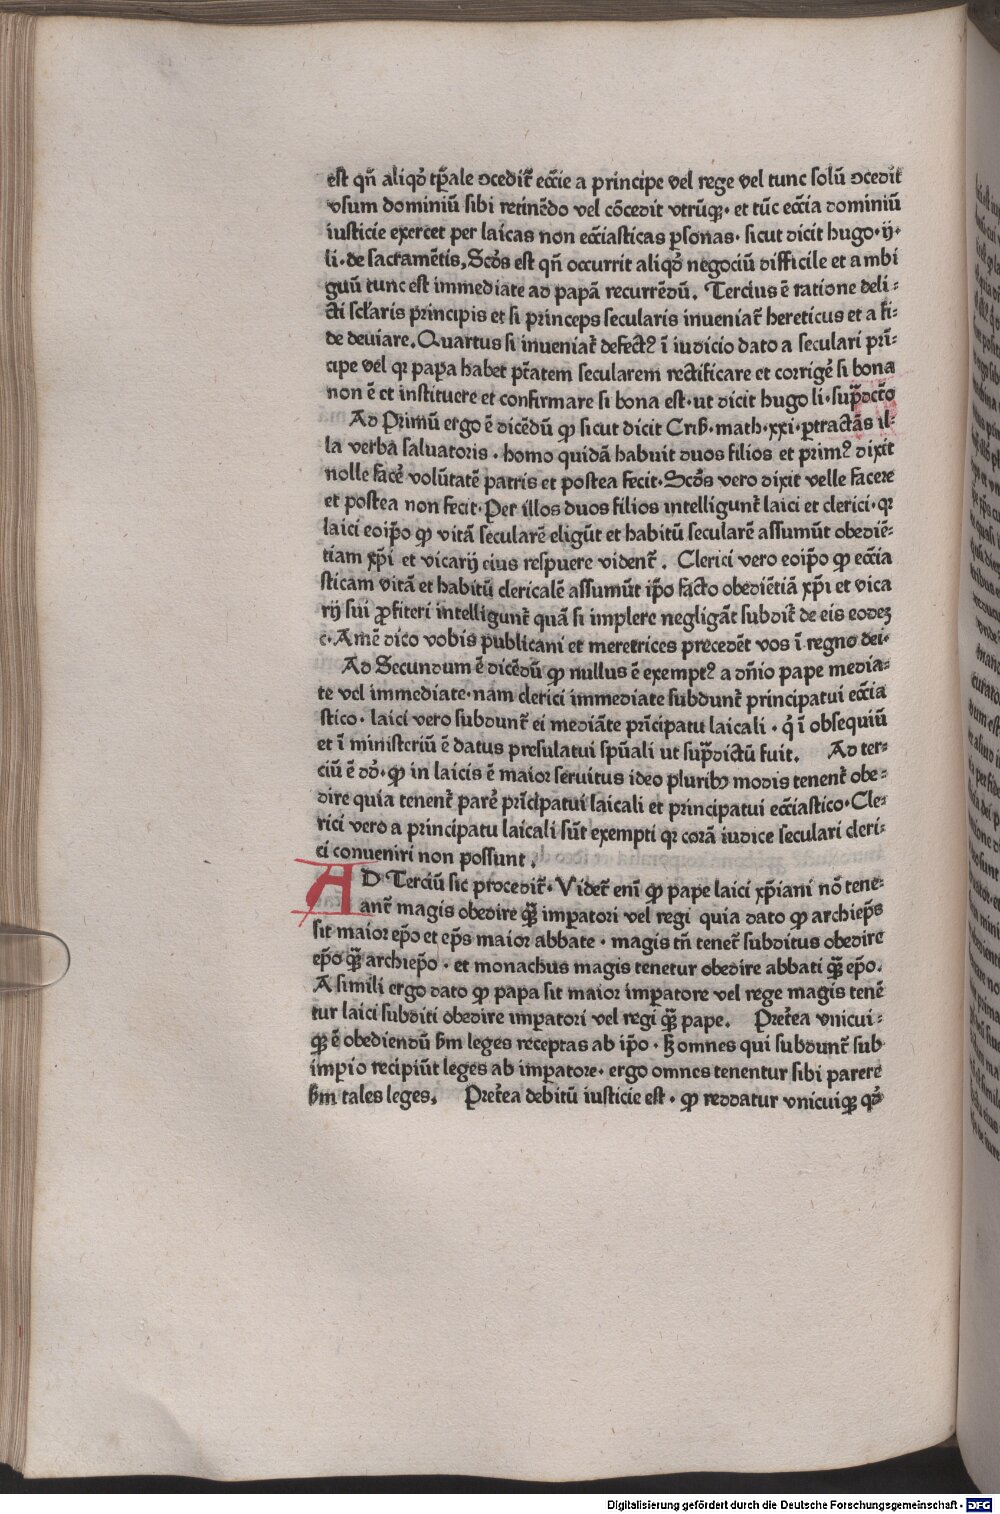 est qñ aliqđ tꝑale ↄcedit᷑ ecc̄ie a principe vel rege vel tunc solū ↄcedit
vsum dominiū sibi retinēdo vel cōcedit vtrūqꝫ· et tūc ecc̄ia dominiū
iusticie exercet per laicas non ecc̄iasticas ꝑsonas· sicut dicit hugo·ij·
li·de sacramētis, Scđs est qñ occurrit aliqđ negociū difficile et ambi
guū tunc est immediate ad papā recurrēdū. Tercius ē ratione deli⸗
cti sc̄laris principis et si princeps secularis inueniat᷑ hereticus et a fi⸗
de deuiare. Quartus si inueniat᷑ defectꝰ ī iudicio dato a seculari prī⸗
cipe vel qr papa habet pt̄atem secularem rectificare et corrige᷑ si bona
non ē et instituere et confirmare si bona est·ut dicit hugo li·sup̄dct̄o
Ad Primū ergo ē dicēdū ꝙ sicut dicit Crisꝰ·math·xxi·ꝑtractās il⸗
la verba saluatoris· homo quidā habuit duos filios et primꝰ dixit
nolle face᷑ volūtatē patris et postea fecit·Scđs vero dixit velle facere
et postea non fecit·Per illos duos filios intelligunt᷑ laici et clerici·qr
laici eoip̄o ꝙ vitā secularē eligūt et habitū secularē assumūt obediē⸗
tiam xp̄i et vicarij eius respuere vident᷑. Clerici vero eoip̄o ꝙ ecc̄ia
sticam vitā et habitū clericalē assumūt ip̄o facto obediētiā xp̄i et vica
rij sui ꝓfiteri intelligunt᷑ quā si implere negligāt subdit᷑ de eis eodeꝫ
c·Amē dico vobis publicani et meretrices precedēt vos ī regno dei·
Ad Secundum ē dicēdū ꝙ nullus ē exemptꝰ a dn̄io pape media⸗
te vel immediate·nam clerici immediate subdunt᷑ principatui ecc̄ia
stico· laici vero subdunt᷑ ei mediāte prīcipatu laicali· q̇ ī obsequiū
et ī ministeriū ē datus presulatui spūali ut sup̄dictū fuit. Ad ter⸗
ciū ē dđ·ꝙ in laicis ē maior seruitus ideo pluribꝰ modis tenent᷑ obe⸗
dire quia tenent᷑ pare᷑ prīcipatui laicali et principatui ecc̄iastico·Cle⸗
rici vero a principatu laicali sūt exempti qr corā iudice seculari cleri⸗
ci conueniri non possunt.
AD Terciū sic procedit᷑·Videt᷑ enī ꝙ pape laici xp̄iani nō tene⸗
ant᷑ magis obedire qꝫ̄ imꝑatori vel regi quia dato ꝙ archiep̄s
sit maior ep̄o et ep̄s maior abbate· magis tn̄ tenet᷑ subditus obedire
ep̄o qꝫ̄ archiep̄o· et monachus magis tenetur obedire abbati qꝫ̄ ep̄o.
A simili ergo dato ꝙ papa sit maior imꝑatore vel rege magis tenē
tur laici subditi obedire imꝑatori vel regi qꝫ̄ pape. Pret᷑ea vnicui⸗
qꝫ ē obediendū ẜm leges receptas ab ip̄o· ꝫ omnes qui subdunt᷑ sub
imꝑio recipiūt leges ab imꝑatore· ergo omnes tenentur sibi parere
ẜm tales leges. Pret᷑ea debitū iusticie est· ꝙ reddatur vnicuiqꝫ qđ
Digitalisierung gefördert durch die Deutsche Forschungsgemeinschaft - DFG